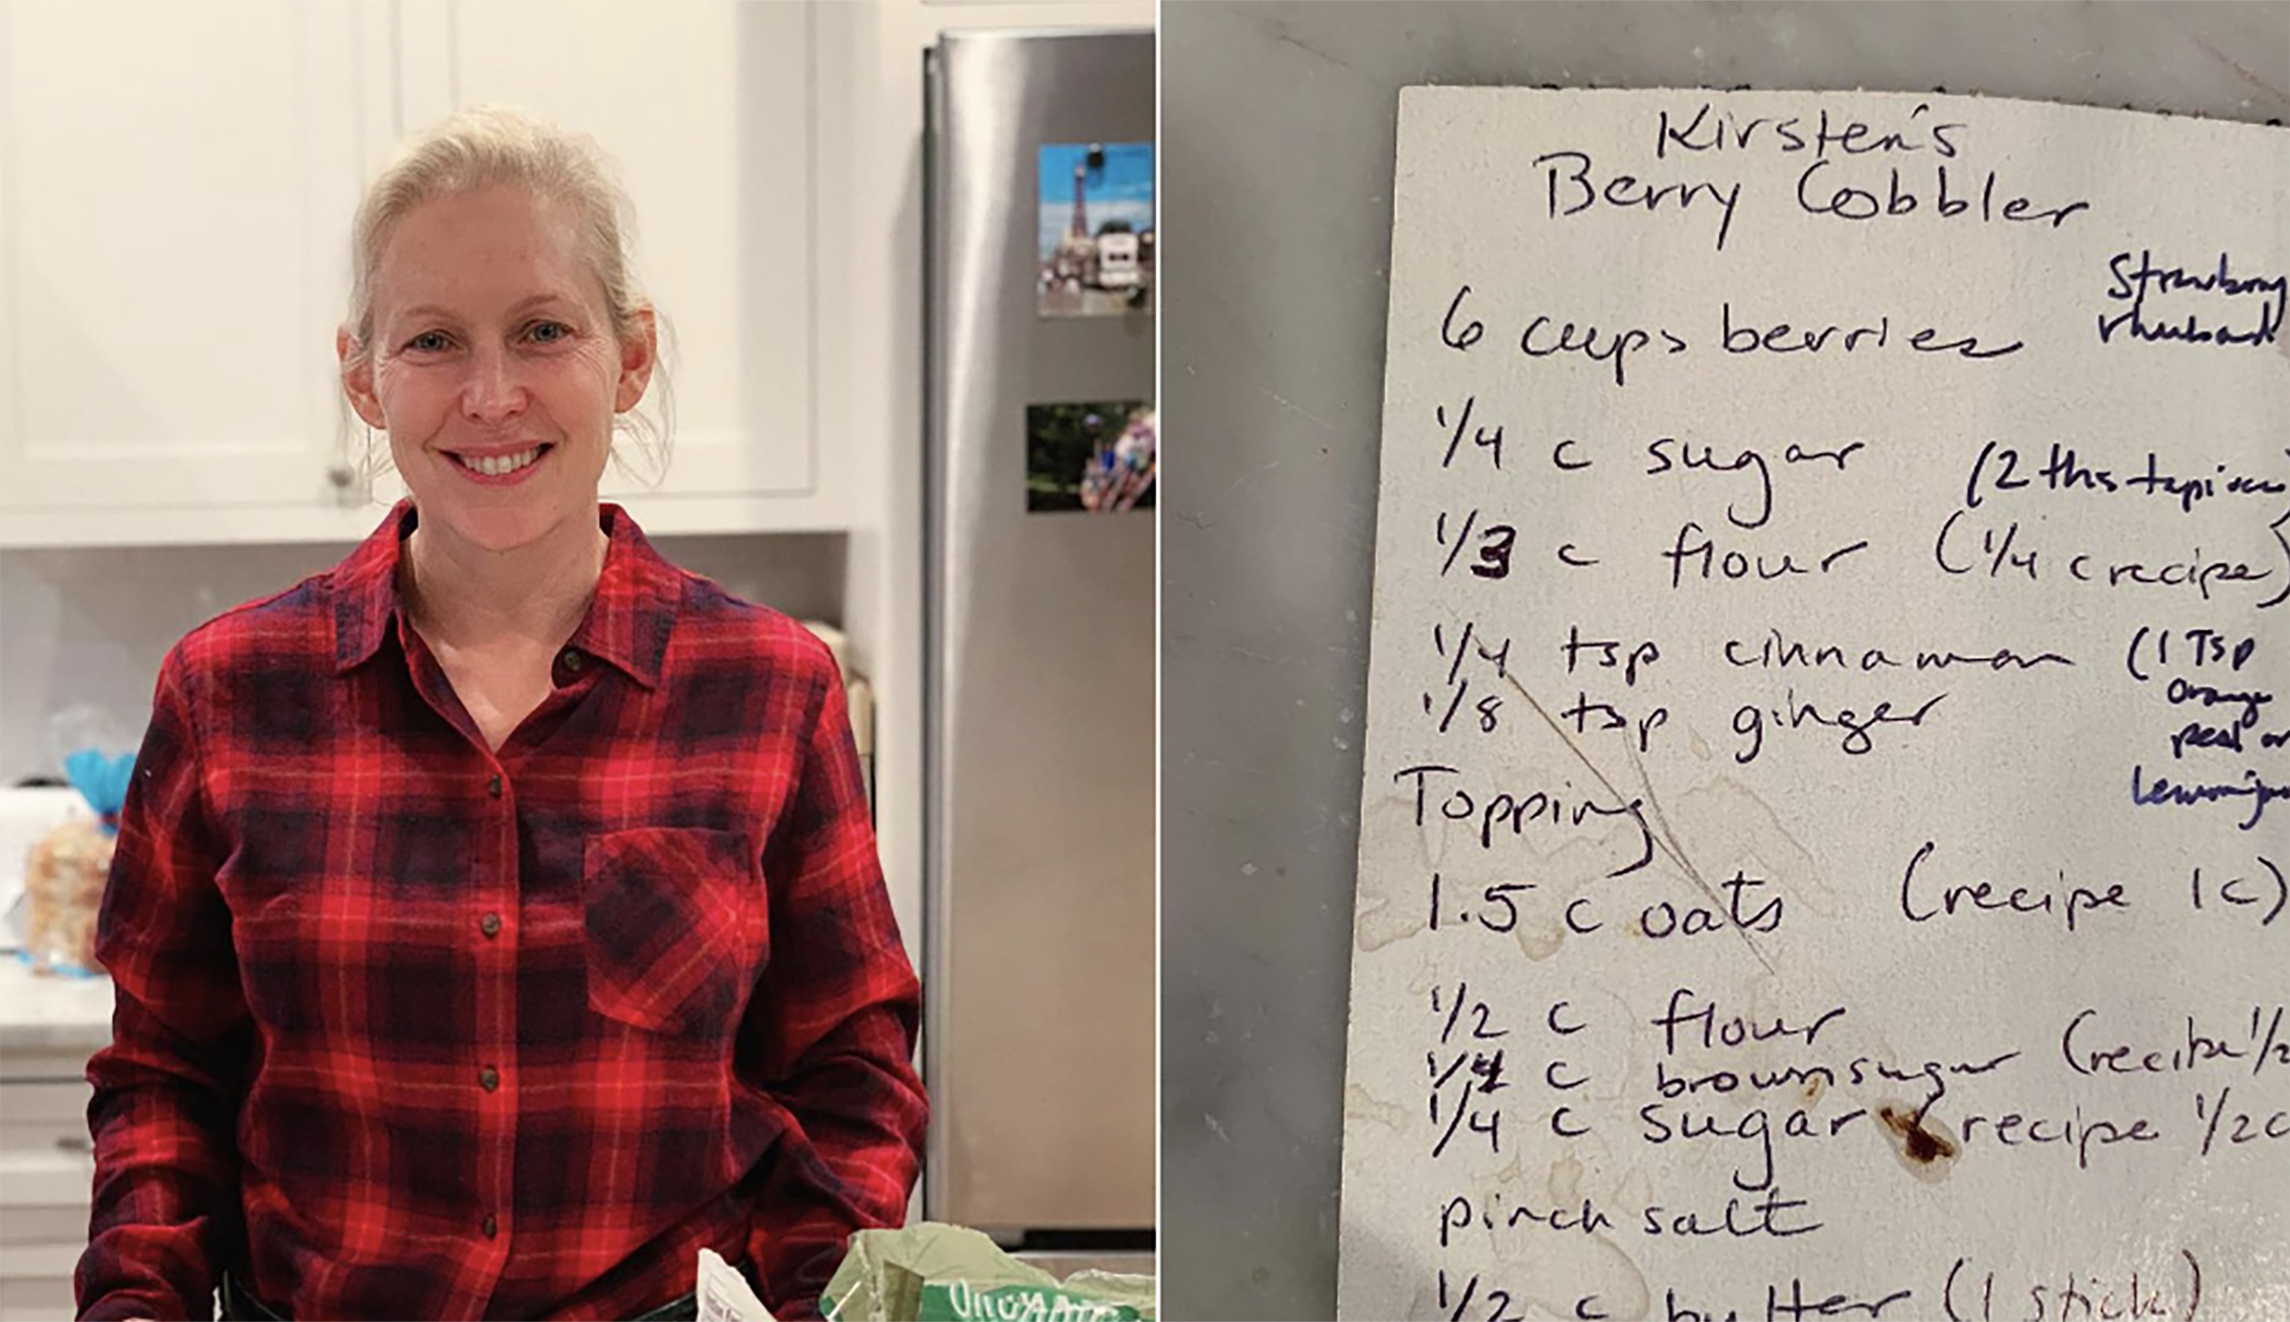 Kirsten's
Berry Cobbler
Strawberry
rhubarb
6 cups berries
1/4 c sugar
(2 tbs tapioca
1/3 c flour (1/4 c recipe)
1/4 tsp cinnamon (1 Tsp
orange
peal or
1/8 tsp ginger
Topping
1.5 c oats (recipe 1c)
1/2 c flour
1/4 c brown sugar (recibe 1/2
1/4 c sugar (recipe 1/2c
pinch salt
1/2 c butter (1 stick)
ORGANIC